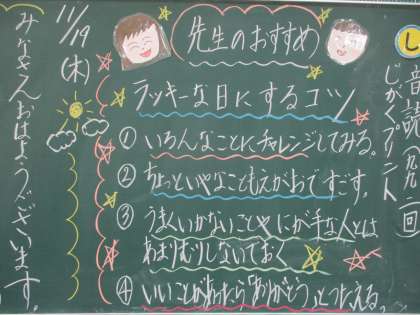 し
音読(九九)一回
じがくプリント
先生のおすすめ
ラッキーな日にするコツ
① いろんなことにチャレンジしてみる。
② ちょっといやなこともえがおですごす。
③ うまくいかないことやにが手な人とは
あまりむりしないでおく
④ いいことがあったら「ありがとう」とつたえる。
11/19(木)
みなさんおはようございます。